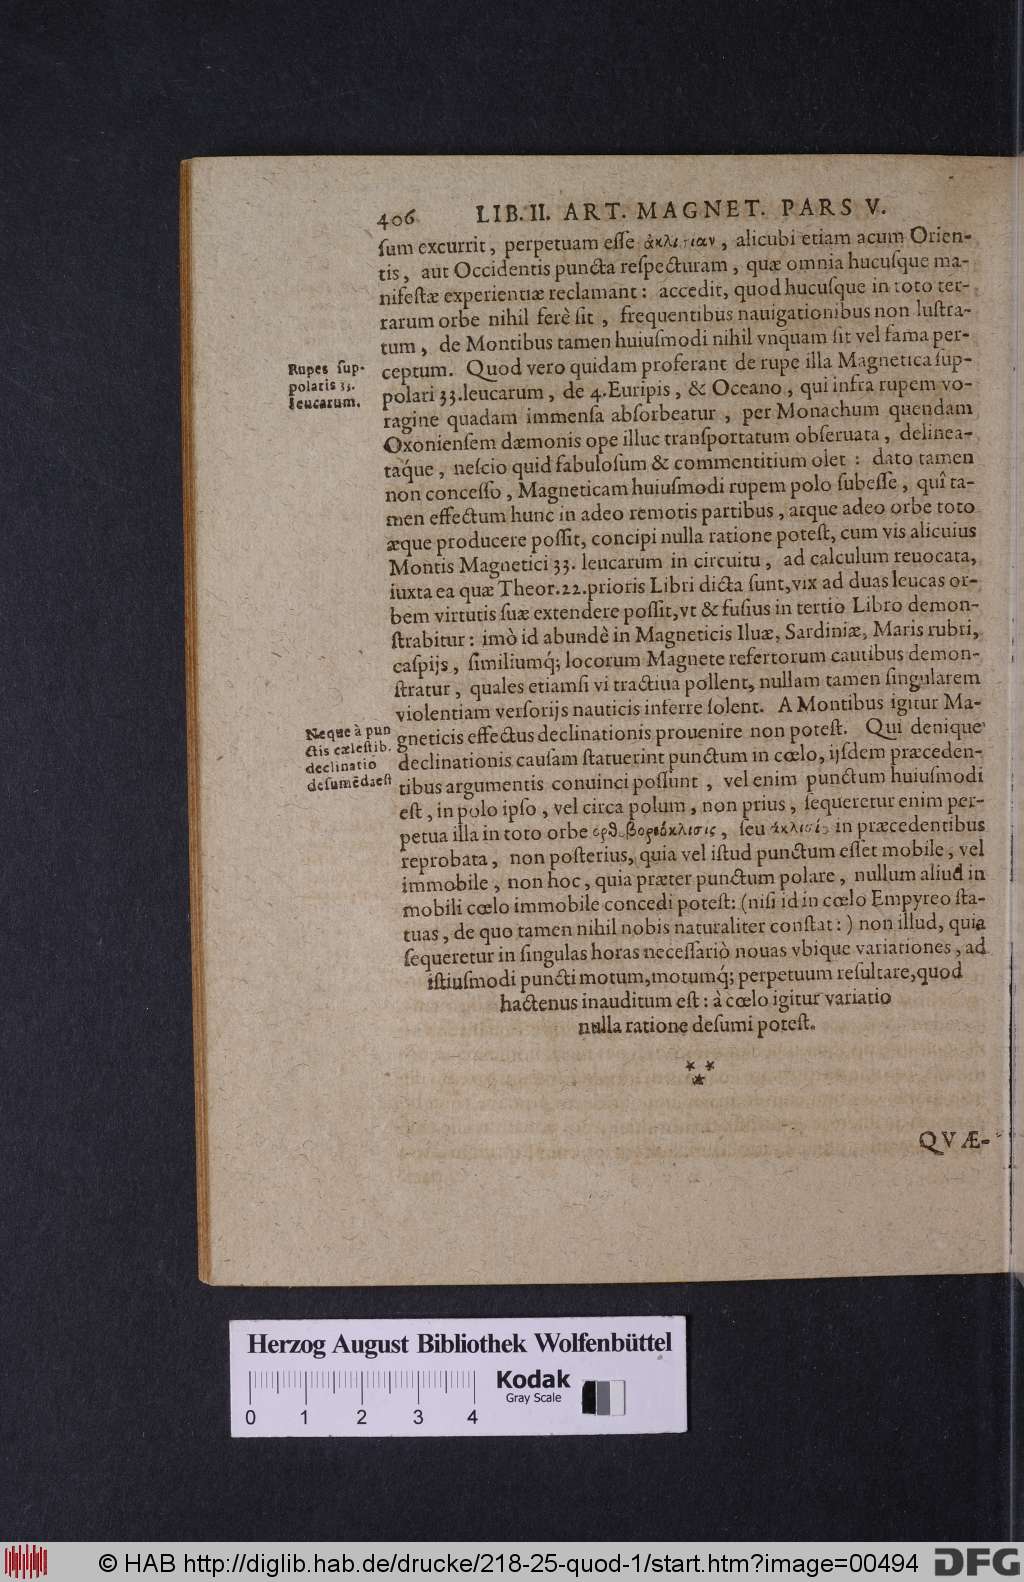 406 LIB. II. ART. MAGNET. PARS V.
ſum excurrit, perpetuam eſſe alicubi etiam acum Orien-
tis, aut Occidentis puncta reſpecturam, quæ omnia hucuſque ma-
nifeſtæ experientiæ reclamant: accedit, quod hucuſque in toto ter-
rarum orbe nihil ferè ſit, frequentibus nauigationibus non luſtra-
tum, de Montibus tamen huiuſmodi nihil vnquam ſit vel fama per-
ceptum. Quod vero quidam proferant de rupe illa Magnetica ſup-
polari 33. leucarum, de 4. Euripis, & Oceano, qui infra rupem vo-
ragine quadam immenſa abſorbeatur, per Monachum quendam
Oxonienſem dæmonis ope illuc tranſportatum obſeruata, delinea-
taq́ue, neſcio quid fabuloſum & commentitium olet: dato tamen
non conceſſo, Magneticam huiuſmodi rupem polo ſubeſſe, quî ta-
men effectum hunc in adeo remotis partibus, atque adeo orbe toto
æque producere poſſit, concipi nulla ratione poteſt, cum vis alicuius
Montis Magnetici 33. leucarum in circuitu, ad calculum reuocata,
iuxta ea quæ Theor. 22. prioris Libri dicta ſunt, vix ad duas leucas or-
bem virtutis ſuæ extendere poſſit, vt & fuſius in tertio Libro demon-
ſtrabitur: imò id abundè in Magneticis Iluæ, Sardiniæ, Maris rubri,
caſpijs, ſimiliumq́; locorum Magnete refertorum cautibus demon-
ſtratur, quales etiamſi vi tractiua pollent, nullam tamen ſingularem
violentiam verſorijs nauticis inferre ſolent. A Montibus igitur Ma-
gneticis effectus declinationis prouenire non poteſt. Qui denique
declinationis cauſam ſtatuerint punctum in cœlo, ijſdem præceden-
tibus argumentis conuinci poſſunt, vel enim punctum huiuſmodi
eſt, in polo ipſo, vel circa polum, non prius, ſequeretur enim per-
petua illa in toto orbe ſeu in præcedentibus
reprobata, non poſterius, quia vel iſtud punctum eſſet mobile, vel
immobile, non hoc, quia præter punctum polare, nullum aliud in
mobili cœlo immobile concedi poteſt: (niſi id in cœlo Empyreo ſta-
tuas, de quo tamen nihil nobis naturaliter conſtat:) non illud, quia
ſequeretur in ſingulas horas neceſſariò nouas vbique variationes, ad
iſtiuſmodi puncti motum, motumq́; perpetuum reſultare, quod
hactenus inauditum eſt: à cœlo igitur variatio
nulla ratione deſumi poteſt.
QVÆ-
Rupes ſup-
polaris 33.
leucarum.
Neque à pun
ctis cæleſtib.
declinatio
deſumēda eſt
Herzog August Bibliothek Wolfenbüttel
Kodak
Gray Scale
0 1 2 3 4
© HAB http://diglib.hab.de/drucke/218-25-quod-1/start.htm?image=00494
DFG